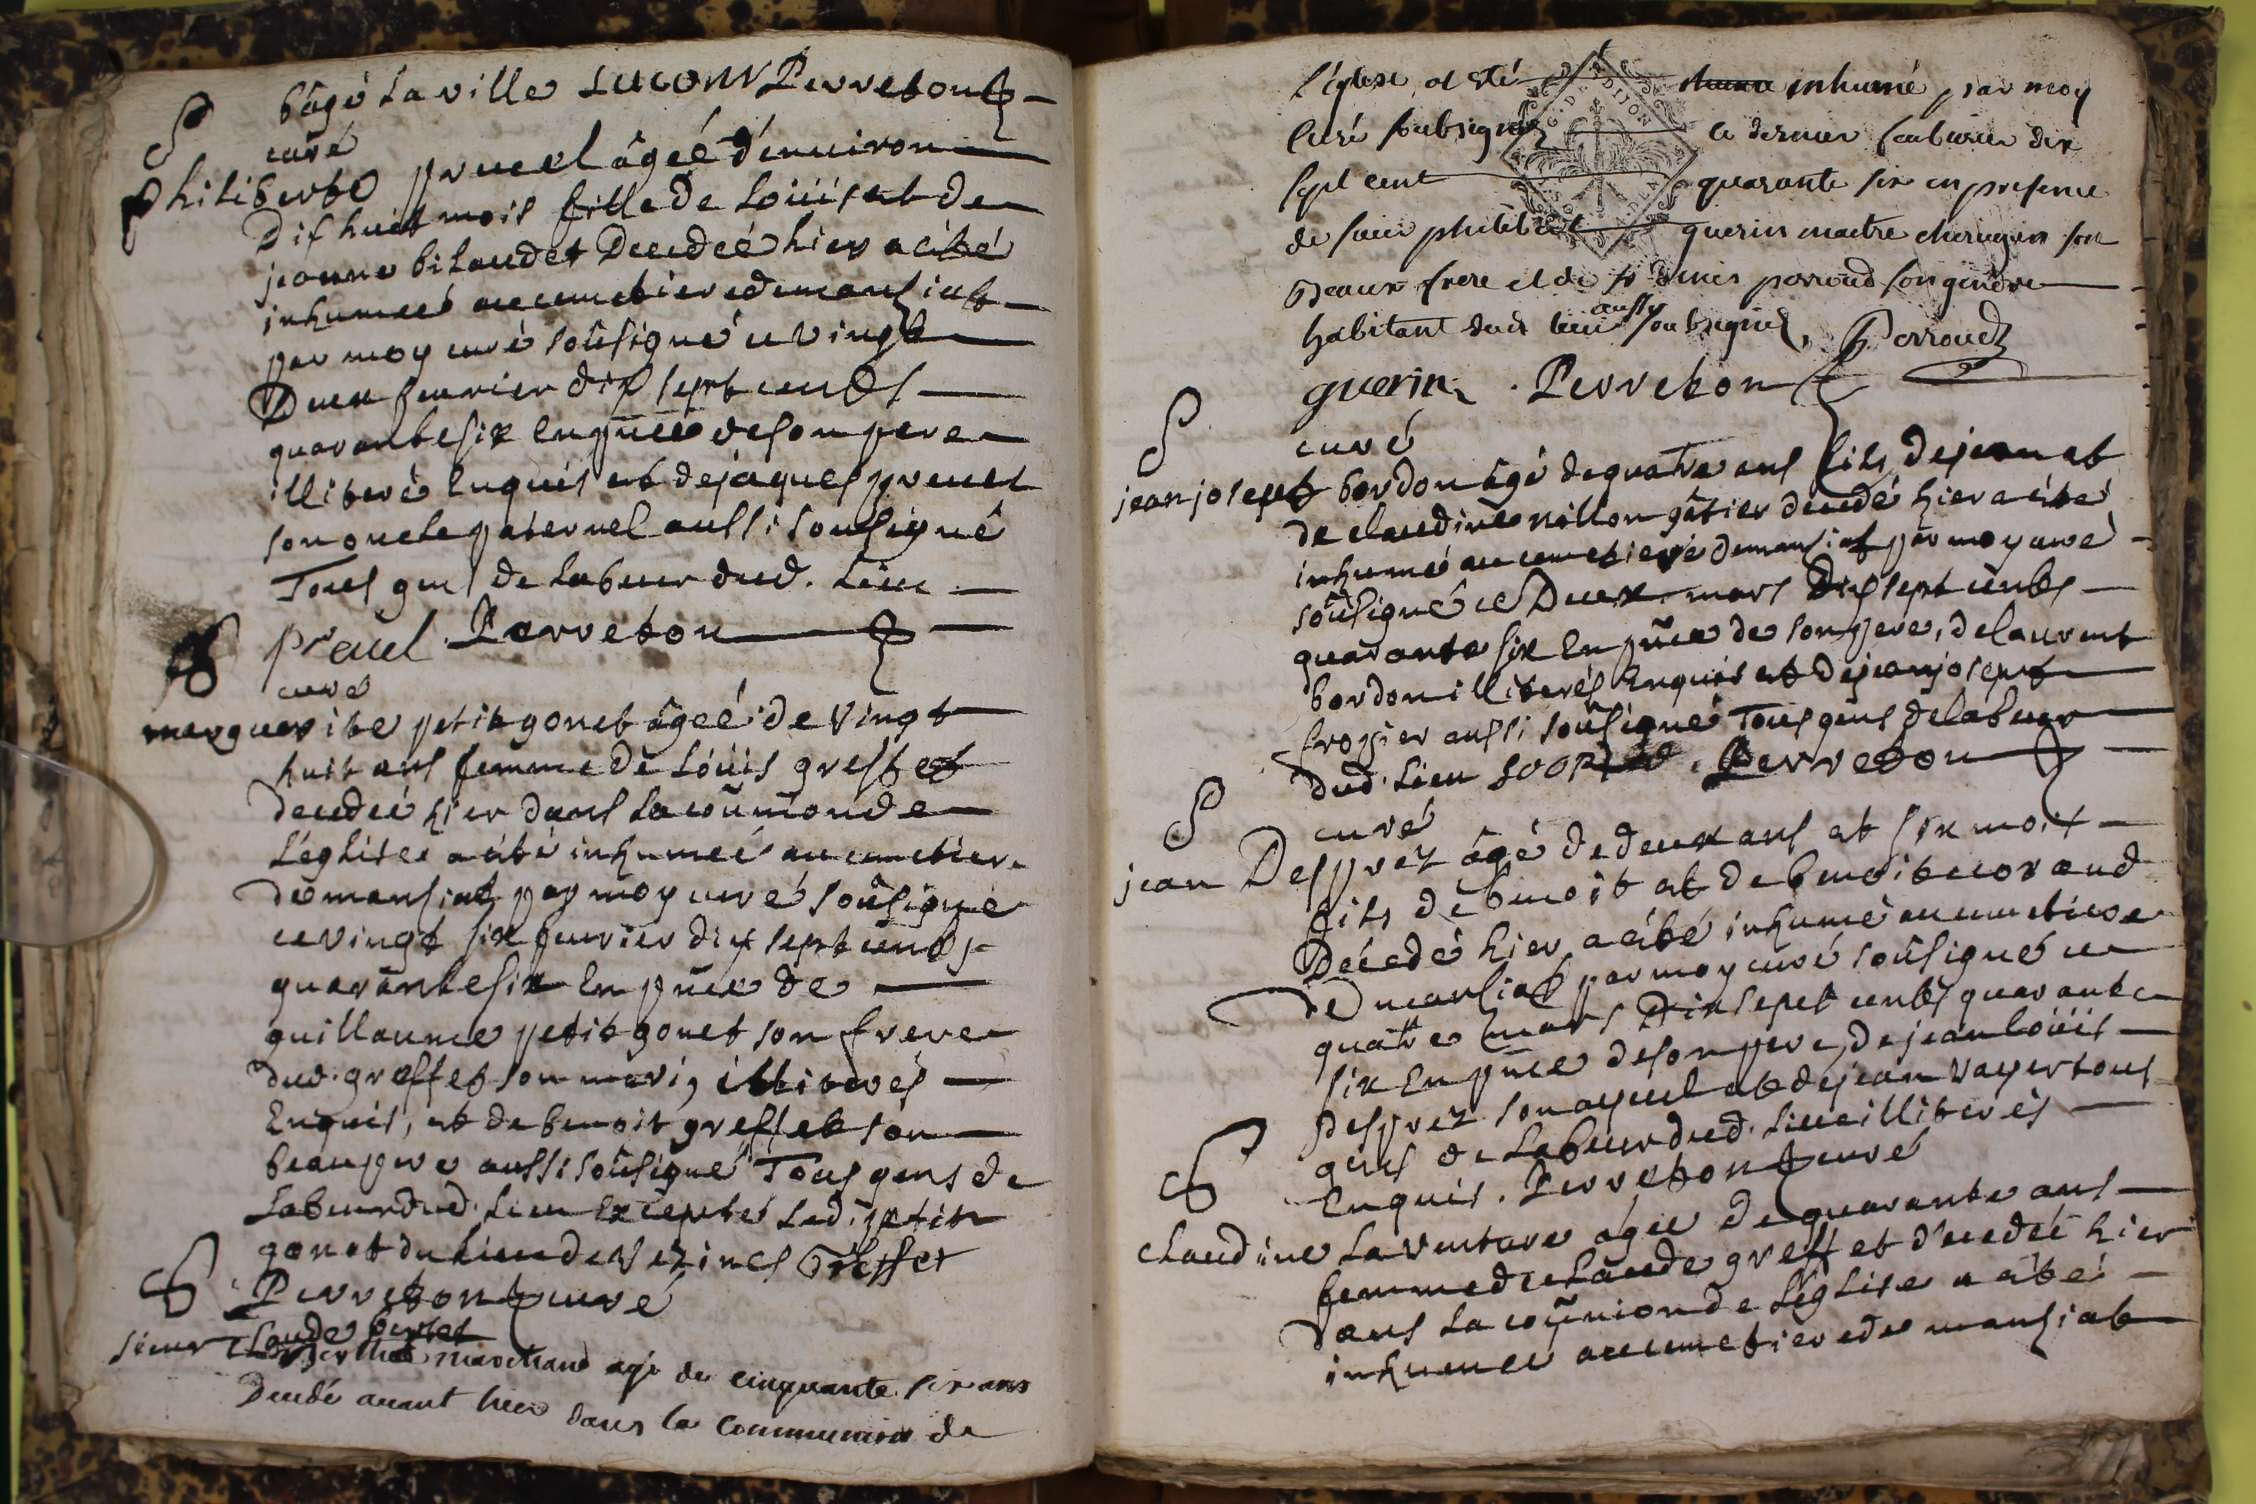 bâgé la ville LUCONN Perreton
curé
S
philiberte pruuel âgeé d'enuiron
dishuit mois fille de Loüis et de
jeanne bilaudet decedeé hier a été
inhumeé au cimetiere de mansiat
par moy curé soûsigné ce vingt
Deux feurier dix sept cents
quarante six En pnce de son pere
illiteré Enquis et de jaques pruuel
son oncle paternel aussi soûsigné
Tous gens de labeur dud. Lieu
pruuel Perreton
curé
S
marguerite petit gonet âgeé de vingt
huit ans femme de Loüis greffet
decedeé hier dans la coũmon de
L'eglise a été inhumeé au cimetiere
de mansiat par moy curé soûsigné
ce vingt six feurier dix sept cents
quarante six En pnce de
guillaume petit gonet son frere
dud. greffet son mari, illiterés
Enquis, et de benoit greffet son
beaupere aussi soûsigné Tous gens de
Labeur dud. Lieu Excepté Led. petit
gonet du Lieu de Vezines Greffet
Perreton curé
S
sieur Claude
marchand agé de cinquante six ans
Decedé auant hier dans la communion de
l'eglise, a esté inhumé par moy
curé soubsigné G. DE DIJON ce dernier feubrier dix
sept cent quarante six en presence
de sieur philibert guerin maitre chirugien son
beaux frere et de sr denis perroud son gendre
habitant dud lieu aussy soubsignes, Perroud
guerin . Perreton
curé
S
jean josept bordon âgé de quatre ans fils de jean et
de claudine nillon gâtier decedé hier a été
inhumé au cimetiere de mansiat par moy curé
soûsigné ce Deux mars Dix sept cents
quarante six En pnce de son pere, de laurent
bordon illiterés Enquis et de jean josept
frozier aussi soûsigné Tous gens de labeur
dud. Lieu Perreton
curé
S
jean Desprez âgé de deux ans et six mois
fils de benoit et de benoite corand
Décedé hier a été inhumé au cimetiere
de mansiat par moy curé soûsigné ce
quatre mars Dix sept cents quarante
six En pnce de son pere, de jean Loüis
Desprez son ayeul et de jean Vayer tous
gens de Labeur dud. Lieu illiterés
Enquis. Perreton curé
S
claudine La venture âgeé de quarante ans
femme de claude greffet décedeé hier
dans la coũmion de L'eglise a été
inhumeé au cimetiere de mansiat